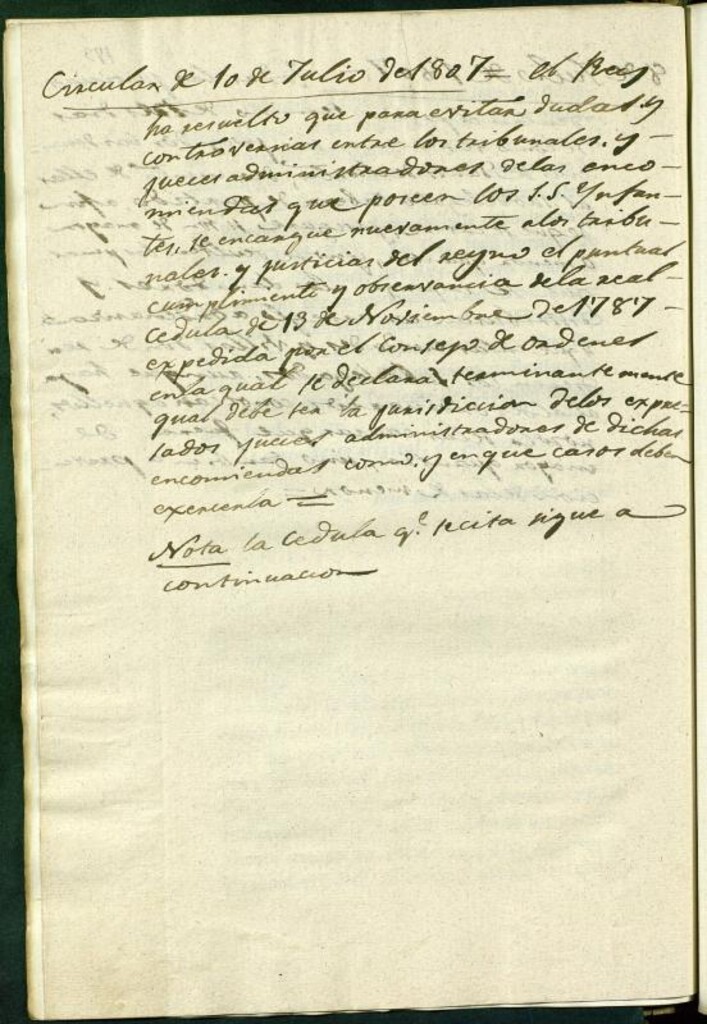 Circular de 10 de Julio de 1807 = el Rey
ha resuelto que para evitar dudas, y
controversias entre los tribunales, y
jueces administradores de las enco-
miendas que poseen los S.S. Ynfan-
tes, se encargue nuevamente a los tribu-
nales, y justicias del reyno el puntual
cumplimiento y observancia de la real
cedula de 13 de Noviembre de 1787
expedida por el Consejo de ordenes
en la qual se declara terminantemente
qual debe ser la jurisdicion de los expre-
sados jueces administradores de dichas
encomiendas como, y en que casos deben
exercerla =
Nota la Cedula q.e se cita sigue a
continuacion